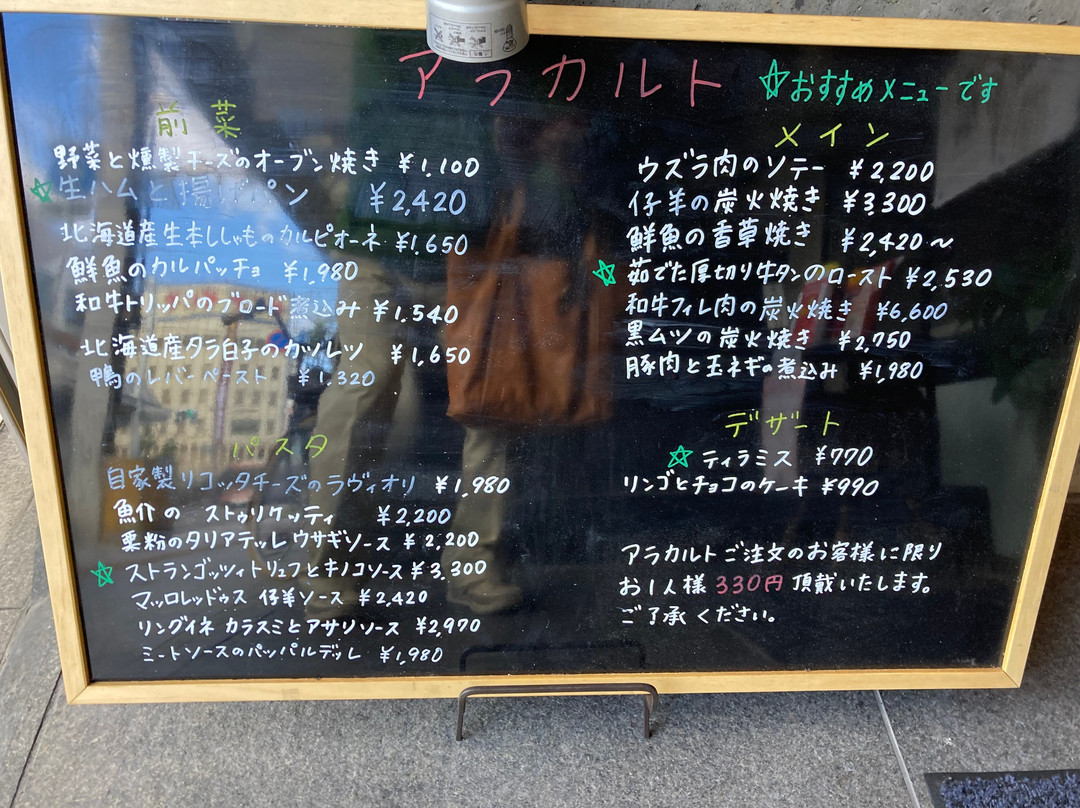 アラカルト
☆おすすめメニューです
前菜
野菜と燻製チーズのオーブン焼き ¥1,100
☆生ハムと揚げパン ¥2,420
北海道産生本ししゃものカルピオーネ ¥1,650
鮮魚のカルパッチョ ¥1,980
和牛トリッパのブロード煮込み ¥1,540
北海道産タラ白子のカツレツ ¥1,650
鴨のレバーペースト ¥1,320
パスタ
自家製リコッタチーズのラヴィオリ ¥1,980
魚介の ストゥリケッティ ¥2,200
栗粉のタリアテッレウサギソース ¥2,200
☆ストランゴッツィトリュフとキノコソース ¥3,300
マッロレッドゥス 仔羊ソース ¥2,420
リングイネ カラスミとアサリソース ¥2,970
ミートソースのパッパルデッレ ¥1,980
メイン
ウズラ肉のソテー ¥2,200
仔羊の炭火焼き ¥3,300
鮮魚の香草焼き ¥2,420～
☆茹でた厚切り牛タンのロースト ¥2,530
和牛フィレ肉の炭火焼き ¥6,600
黒ムツの炭火焼き ¥2,750
豚肉と玉ネギの煮込み ¥1,980
デザート
☆ティラミス ¥770
リンゴとチョコのケーキ ¥990
アラカルトご注文のお客様に限り
お1人様330円頂戴いたします。
ご了承ください。